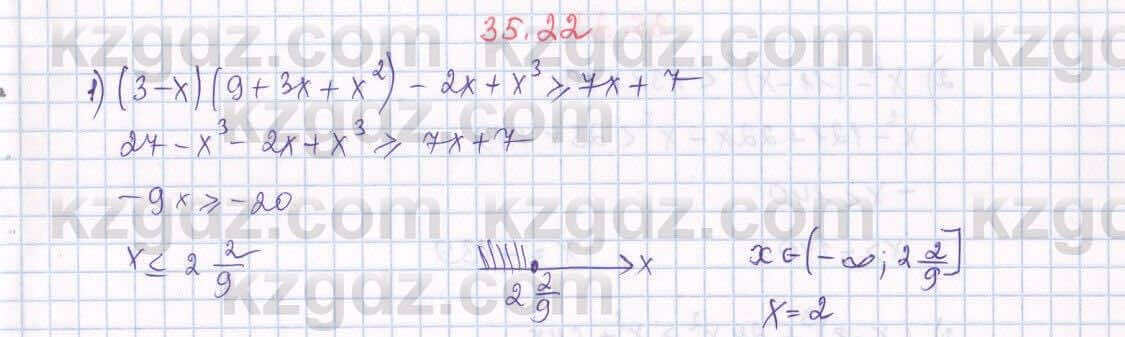 35.22
1) (3-x)(9+3x+x²)-2x+x³≥7x+7
27-x³-2x+x³≥7x+7
-9x≥-20
x≤2 2/9
2 2/9 x
x∈(-∞; 2 2/9]
x=2
kzgdz.com kzgdz.com kzgdz.com
kzgdz.com
kzgdz.com kzgdz.com kzgdz.com
kzgdz.com